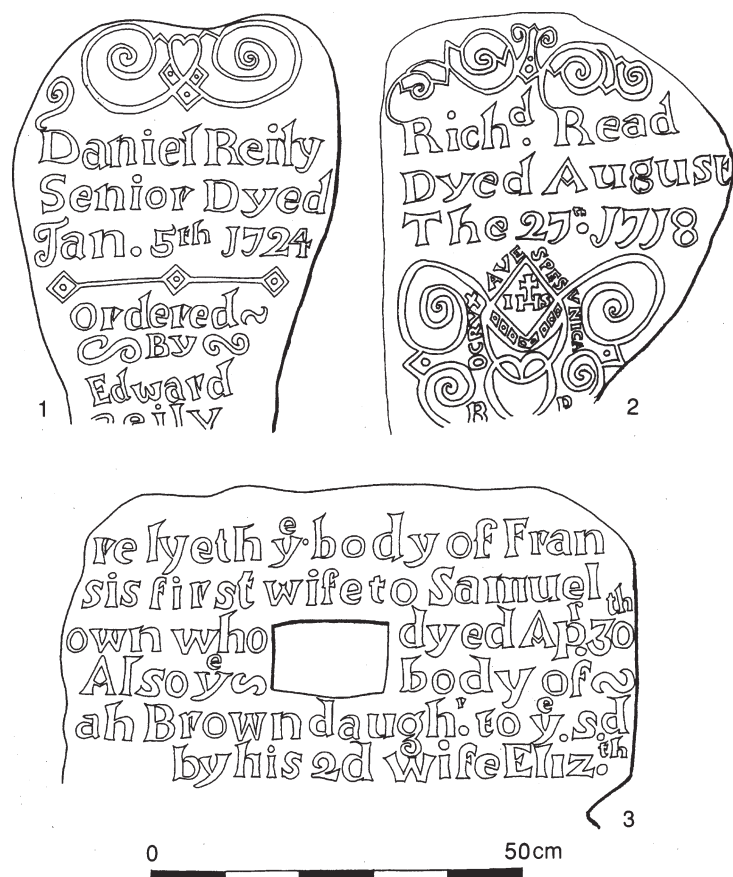 Daniel Reily
Senior Dyed
Jan. 5th 1724
Ordered~
By
Edward
Reily
1
Richd. Read
Dyed August
The 27e: 1718
OCRUX AVE SPES UNICA
IHS
R
2
re lyeth ye. body of Fran
sis first wife to Samuel
own who dyed Apr. 30th
Also ye~ body of~
ah Brown daughr. to ye. sd
by his 2d wife Eliz.th
3
0 50cm